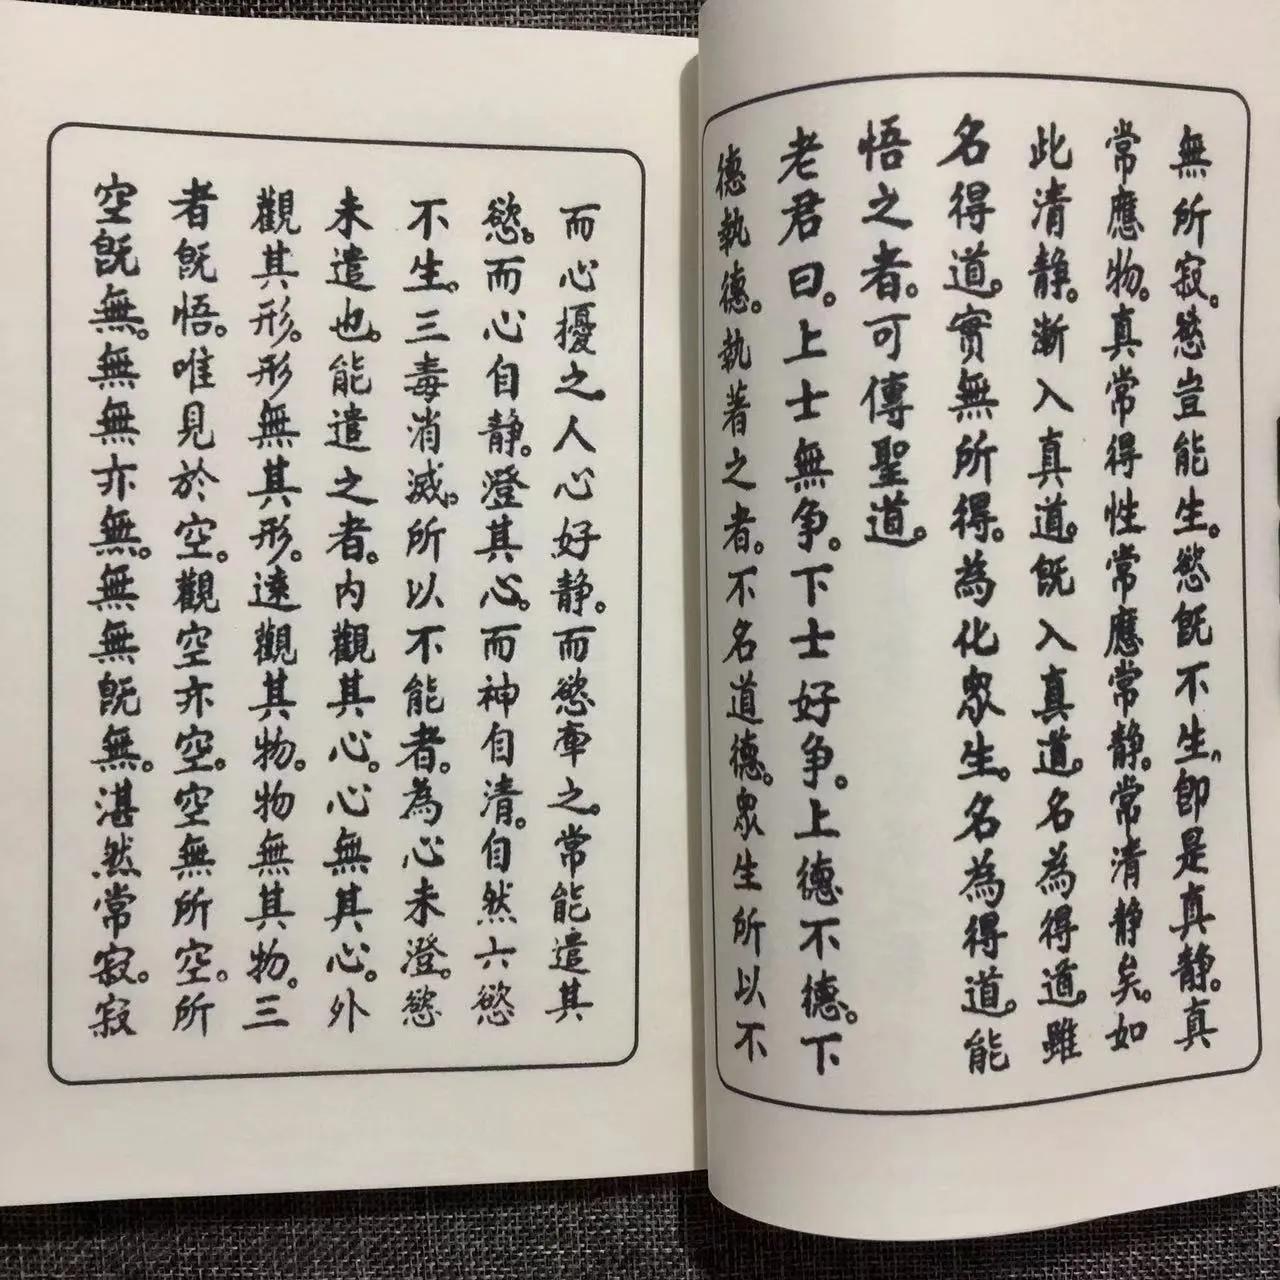 而心擾之人心好静。而慾牽之。常能遣其
慾。而心自静。澄其心。而神自清。自然六慾
不生。三毒消滅。所以不能者。為心未澄。慾
未遣也。能遣之者。内觀其心。心無其心。外
觀其形。形無其形。遠觀其物。物無其物。三
者旣悟。唯見於空。觀空亦空。空無所空。所
空旣無。無無亦無。無無旣無。湛然常寂。寂
無所寂。慾豈能生。慾旣不生。即是真静。真
常應物。真常得性常應常静。常清静矣。如
此清静。漸入真道。旣入真道。名為得道。雖
名得道。實無所得。為化眾生。名為得道。能
悟之者。可傳聖道。
老君曰。上士無争。下士好争。上德不德。下
德執德。執著之者。不名道德。眾生所以不